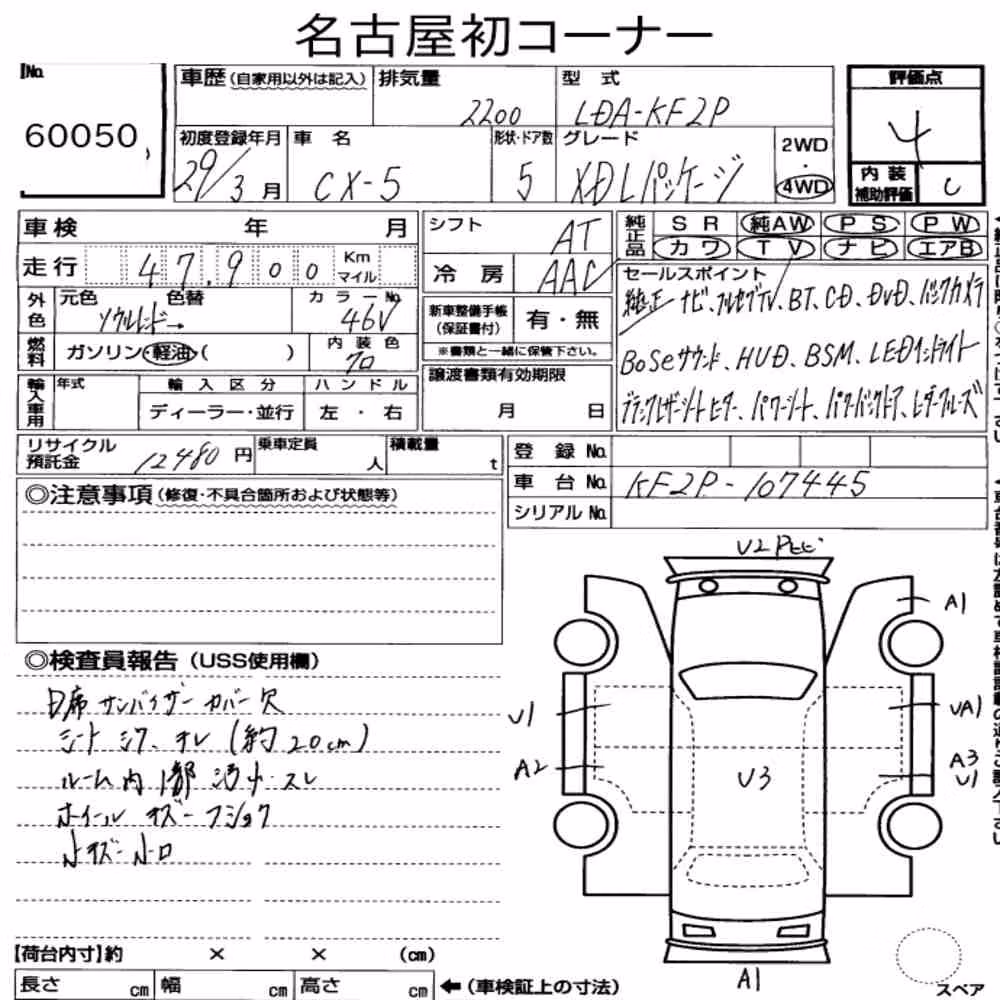 名古屋初コーナー
No.
60050
車歴(自家用以外は記入)
排気量
2200
型式
LDA-KF2P
評価点
4
初度登録年月
29/3月
車名
CX-5
形状・ドア数
5
グレード
XD Lパッケージ
2WD
・
4WD
内装
補助評価
C
車検 年 月
走行 47,900 Km
マイル
外色
元色 色替
ソウルレッド→
カラーNo.
46V
燃料
ガソリン・軽油・( )
内装色
クロ
輸入車用
年式
輸入区分
ディーラー・並行
ハンドル
左・右
シフト
AT
冷房
AAC
新車整備手帳
(保証書付)
有・無
※書類と一緒に保管下さい。
譲渡書類有効期限
月 日
純正品
SR 純AW PS PW
カワ TV ナビ エアB
セールスポイント
純正ナビ、フルセグTV、BT、CD、DVD、バックカメラ
BoSeサウンド、HUD、BSM、LEDヘッドライト
ブラックレザーシートヒーター、パワーシート、パワーバックドア、レーダークルーズ
リサイクル
預託金
12480円
乗車定員
人
積載量
t
登録No.
車台No.
KF2P-107445
シリアルNo.
◎注意事項(修復・不具合箇所および状態等)
◎検査員報告(USS使用欄)
D席サンバイザーカバー欠
シートシワ、スレ(約20cm)
ルーム内1部汚小・スレ
ホイールキズーフショク
小キズー小凹
U2 Pヒビ
A1
U1
UA1
A2
U3
A3
U1
A1
スペア
【荷台内寸】約 × × (cm)
長さ cm
幅 cm
高さ cm
←(車検証上の寸法)